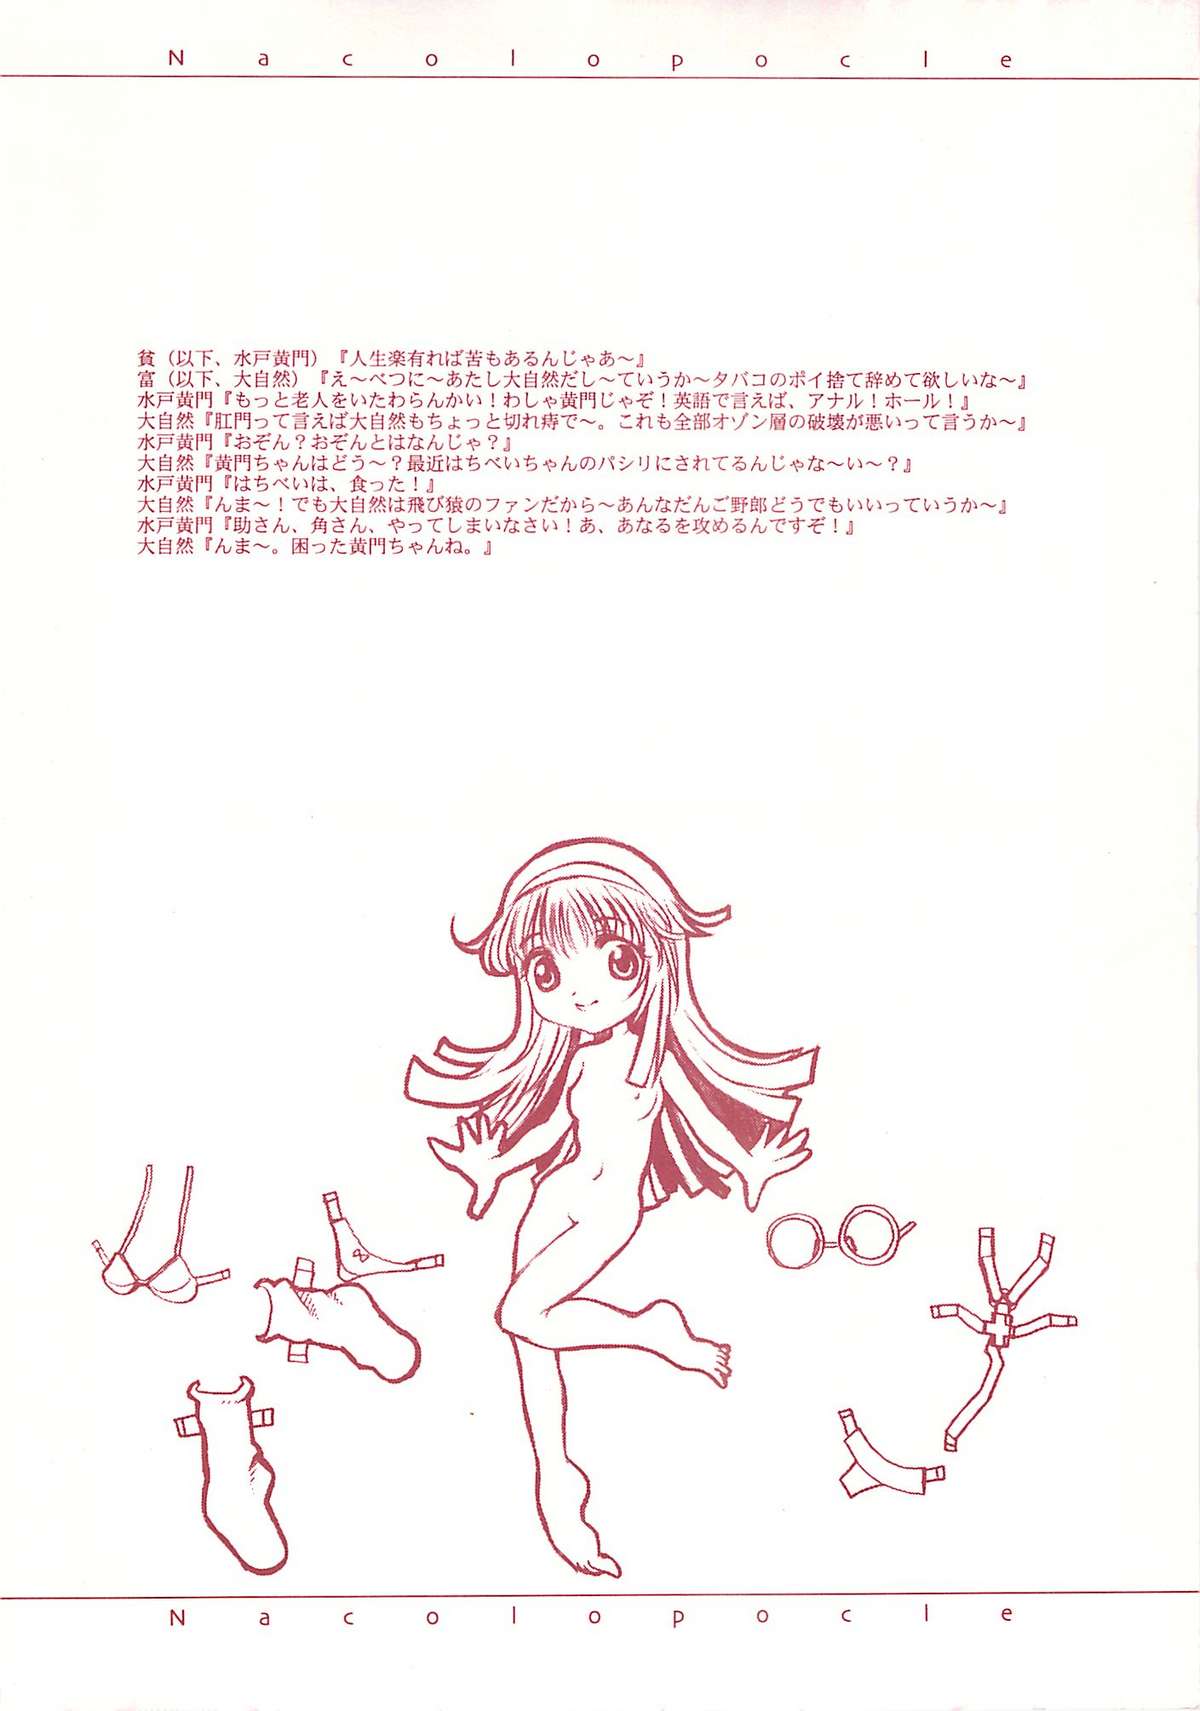 Nacolopocle
貧（以下、水戸黄門）『人生楽有れば苦もあるんじゃあ～』
富（以下、大自然）『え～べつに～あたし大自然だし～ていうか～タバコのポイ捨て辞めて欲しいな～』
水戸黄門『もっと老人をいたわらんかい！わしゃ黄門じゃぞ！英語で言えば、アナル！ホール！』
大自然『肛門って言えば大自然もちょっと切れ痔で～。これも全部オゾン層の破壊が悪いって言うか～』
水戸黄門『おぞん？おぞんとはなんじゃ？』
大自然『黄門ちゃんはどう～？最近はちべいちゃんのパシリにされてるんじゃな～い～？』
水戸黄門『はちべいは、食った！』
大自然『んま～！でも大自然は飛び猿のファンだから～あんなだんご野郎どうでもいいっていうか～』
水戸黄門『助さん、角さん、やってしまいなさい！あ、あなるを攻めるんですぞ！』
大自然『んま～。困った黄門ちゃんね。』
Nacolopocle